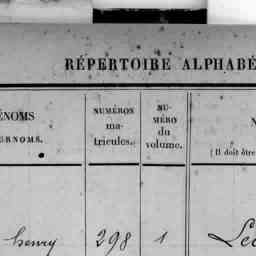 RÉPERTOIRE ALPHABÉ
ÉNOMS
URNOMS.
NUMÉROS
ma-
tricules.
NU-
MÉRO
du
volume.
N
(Il doit être
henry 298 1 Lec